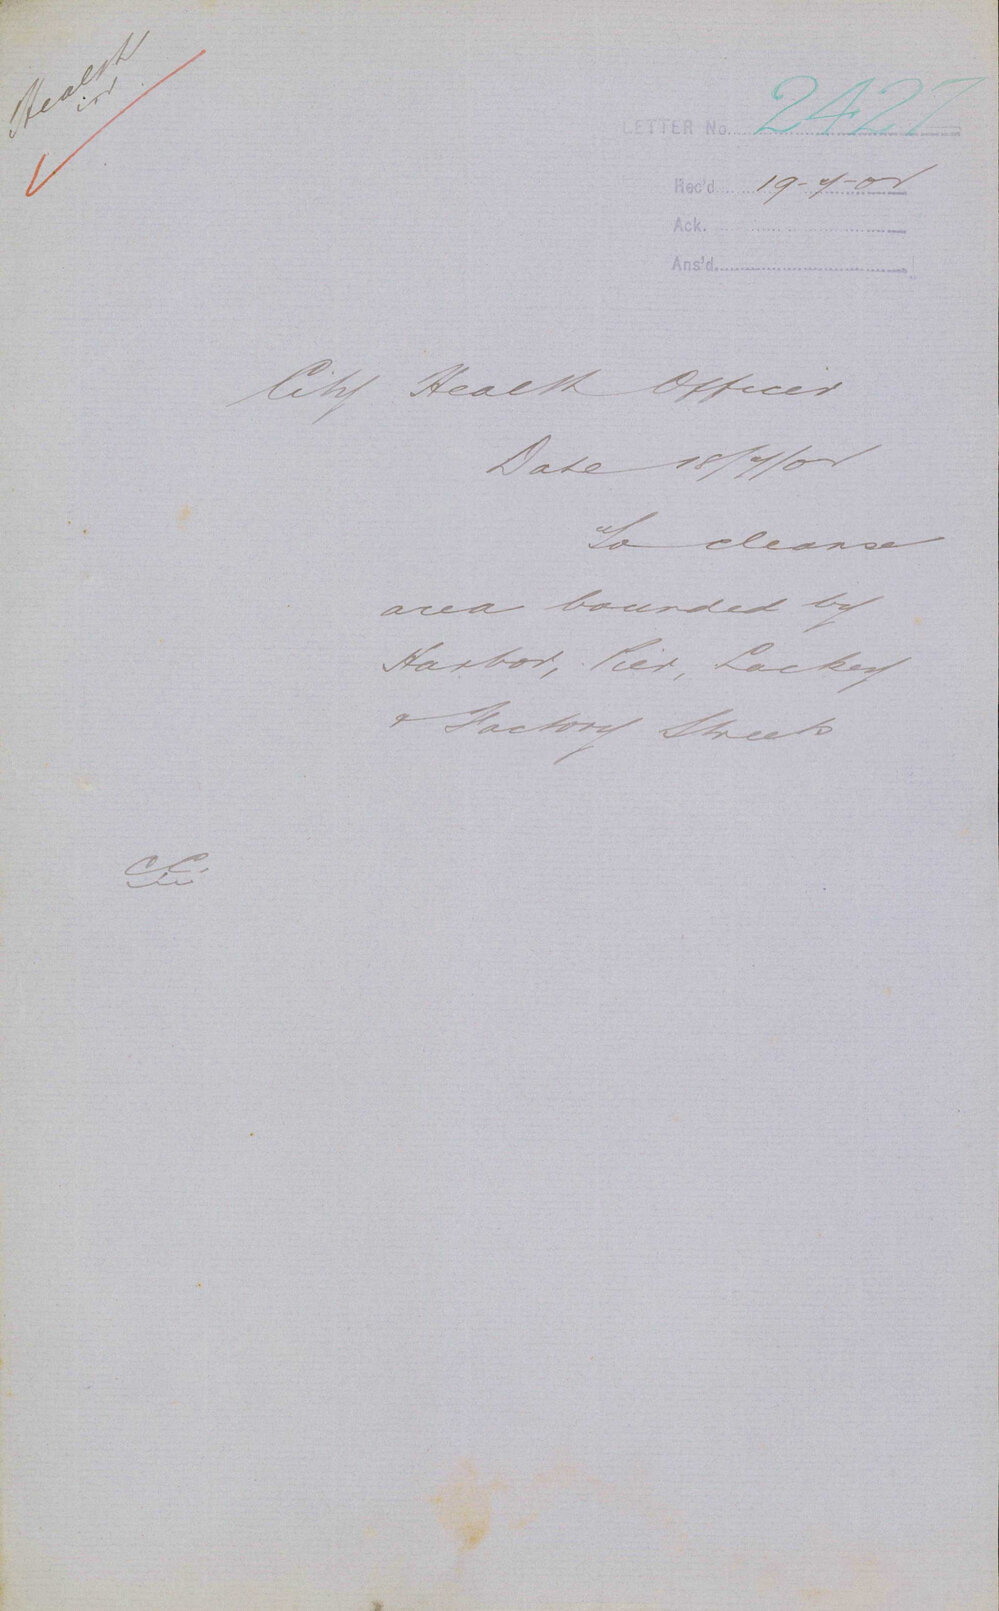 Health
LETTER No. 2427
Rec'd 19-7-01
Ack.
Ans'd.
City Health Officer
Date 18/7/01
"To cleanse
area bounded by
Harbor, Pier, Lackey
& Factory Streets